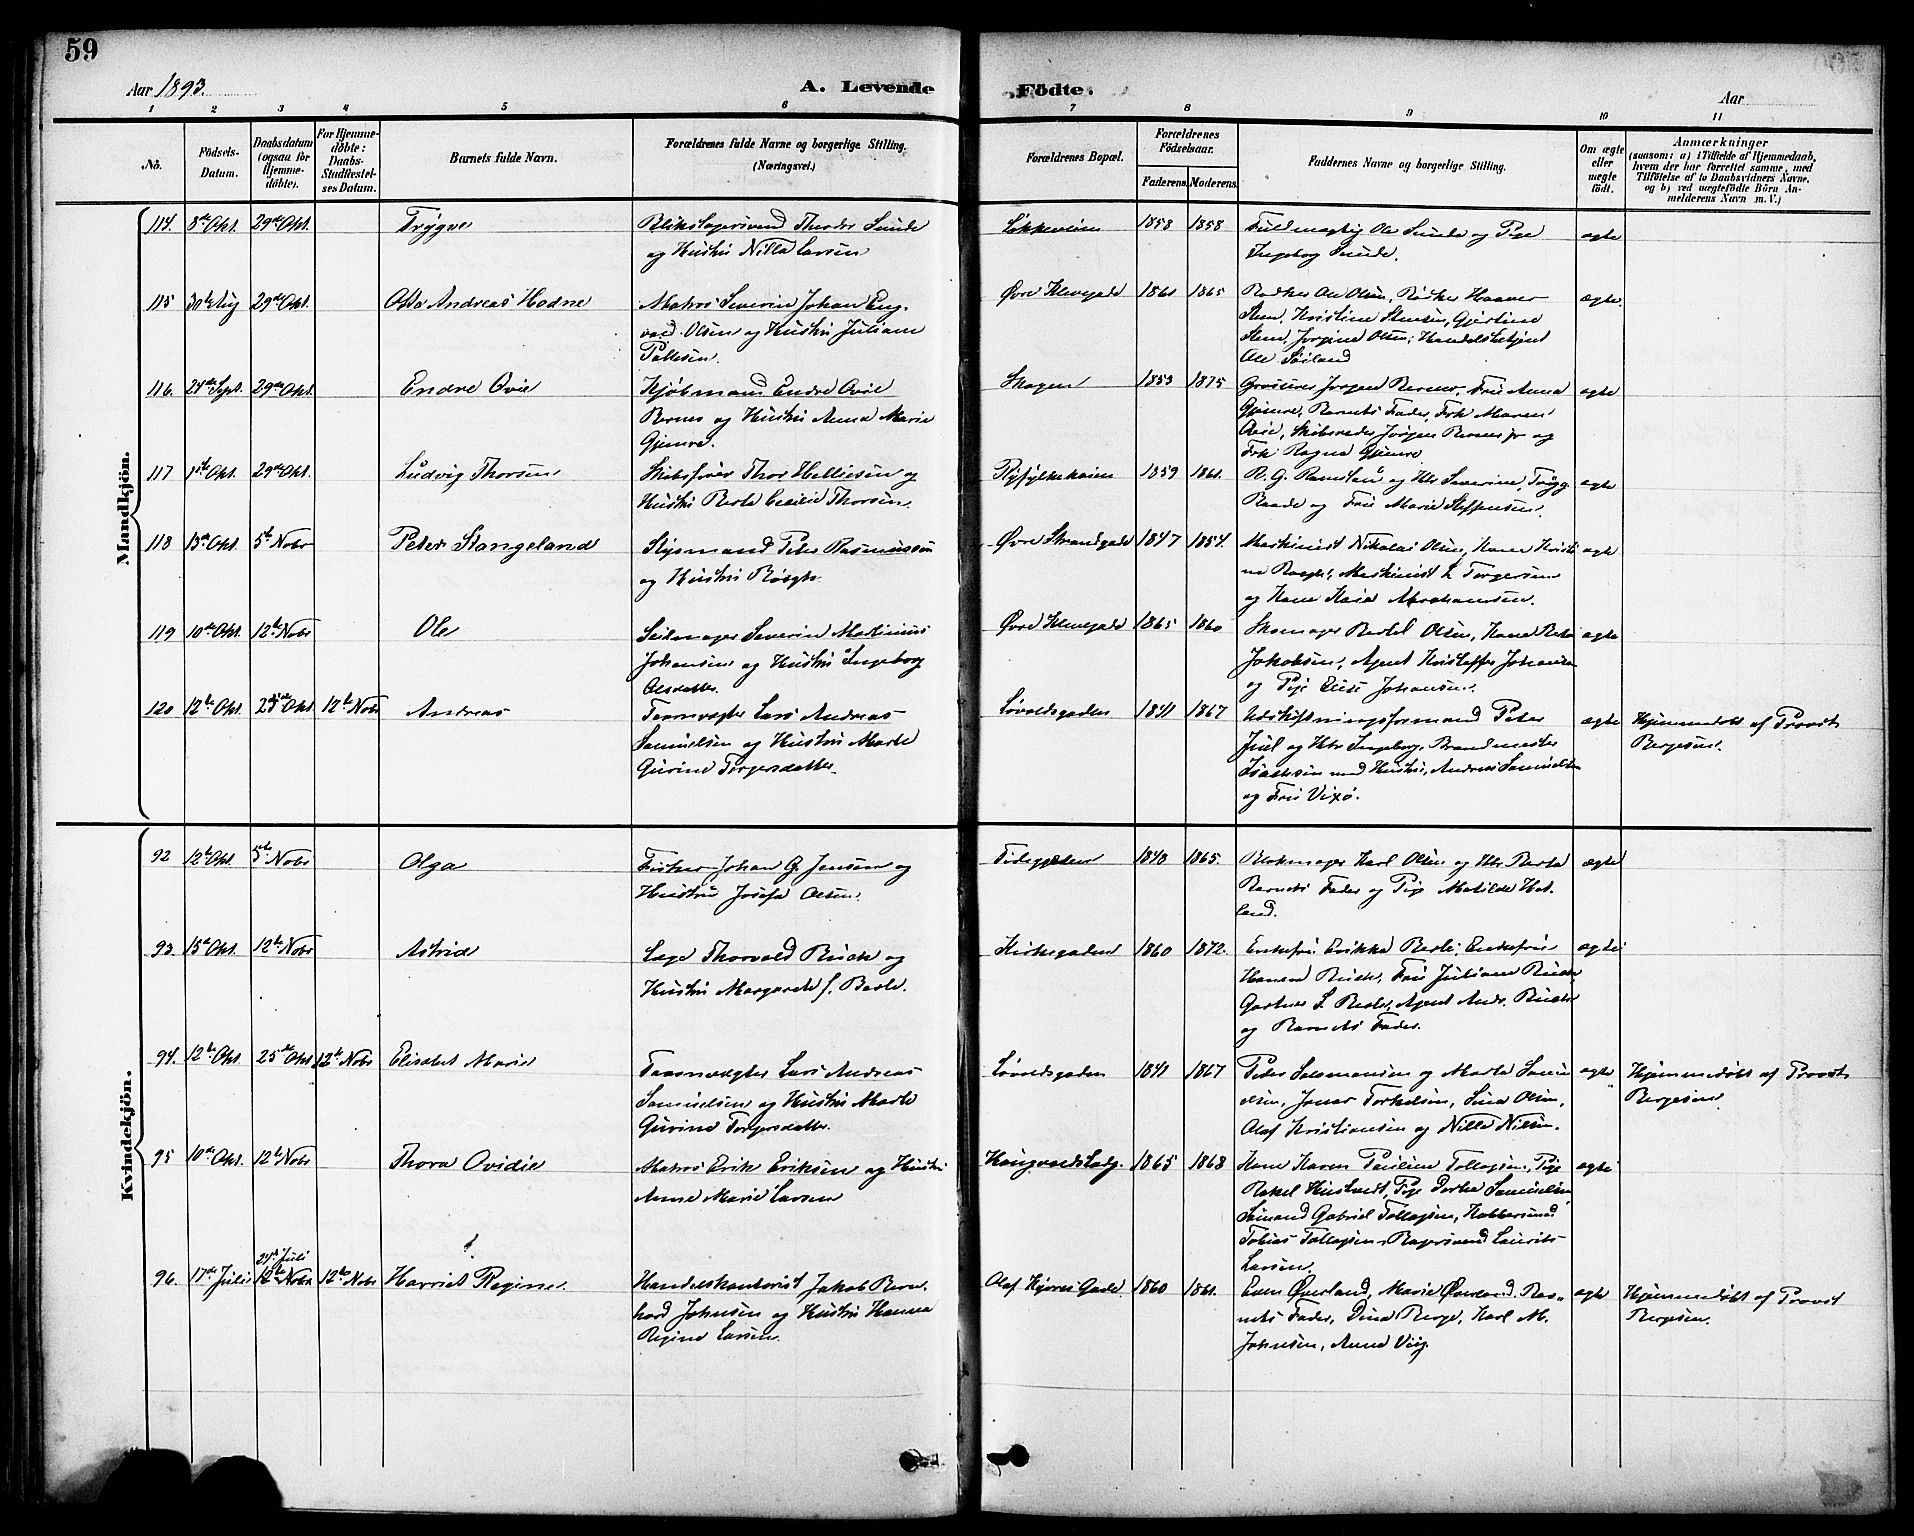 59
Aar 1893.
A. Levende
Födte.
Aar
1 2 3 4 5 6 7 8 9 10 11
No.
Födsels-
Datum.
Daabsdatum
(ogsaa for
Hjemme-
döbte).
For Hjemme-
döbte:
Daabs-
Stadfæstel-
ses Datum.
Barnets fulde Navn.
Forældrenes fulde Navne og borgerlige Stilling.
(Næringsvei.)
Forældrenes Bopæl.
Forældrenes
Födselsaar.
Faderens. Moderens.
Faddernes Navne og borgerlige Stilling.
Om ægte
eller
uægte
födt.
Anmærkninger
(saasom: a) i Tilfælde af Hjemmedaab,
hvem der har forrettet samme, med
Tilföielse af to Daabsvidners Navne,
og b) ved uægtefödte Börn An-
melderens Navn m. V.)
Mandkjön.
114. 8de Okt. 29de Okt. Trygve
Blikslagersvend Theodor Sunde
og Hustru Nilla Larsen
Løkkeveien 1858 1858
Fuldmægtig Ole Sunde og Pige
Ingeborg Sunde.
ægte
115 30te Aug 29de Okt. Otto Andreas Hodne
Matros Severin Johan Eng-
vald Olsen og Hustru Juliane
Pallesen.
Øvre Klevegade 1861 1865
Rødker Ole Olsen, Rødker Haaver
Stene, Kristine Stensen, Gjertine
Stene, Jorgine Olsen, Handelsbetjent
Ole Soiland
ægte.
116. 24de Sept. 29de Okt. Endre Ovie
Kjøbmand Endre Ovie
Berner og Hustru Anna Marie
Gjemre.
Skagen 1853 1875
Grosserer Jorgen Berner, Fru Anna
Gjemre, Barnets Fader, Frk Maren
Ovie, Skibsreder Jørgen Berner jr og
Frk Ragna Gjemre
ægte
117 1ste Okt. 29de Okt. Ludvig Thorsen
Skibsfører Thor Helliesen og
Hustru Berta Cecilie Thorsen.
Ryfylkekaien 1859 1861.
R. G. Ramsland og Htr Severine, Trygg
Raade og Fru Marie Steffensen.
ægte
118 13de Okt. 5te Nobr Peter Stangeland
Styrmand Peter Rasmussen
og Hustru Røegh.
Øvre Strandgade 1847 1854.
Maskinist Nikolai Olsen, Kone Kristi
ne Roegh, Maskinist L Torgersen
og Kone Kaia Abrahamsen.
ægte
119 10de Okt. 12te Nobr Ole
Seilmager Severin Matinius
Johansen og Hustru Ingeborg
Olsdatter.
Øvre Klevegade 1865 1860
Skomager Bertel Olsen, Kone Berta
Jakobsen, Agent Kristoffer Johansen
og Pige Elise Johansen.
ægte
120 12te Okt. 25de Okt. 12te Nobr Andreas
Taarnvægter Lars Andreas
Samuelsen og Hustru Marte
Gurine Torgersdatter.
Løvoldsgaden 1841 1867
Udskiftningsformand Peter
Juul og Htr Ingeborg, Brandmester
Isachsen med Hustru, Andreas Samuelsen
og Fru Vixø.
ægte
Hjemmedøbt af Provst
Bergesen.
Kvindekjön.
92 12te Okt. 5te Nobr Olga
Fisker Johan G. Jensen og
Hustru Josefa Olsen.
1848 1865.
Blokmager Karl Olsen og Htr Berta
Barnets Fader og Pige Matilde Het-
land.
ægte
93. 15de Okt. 12te Nobr Astrid
Læge Thorvald Buch og
Hustru Margarete f. Berle.
Kirkegaden 1860 1872.
Enkefru Erikka Berle, Enkefru
Hanna Buch, Fru Juliane Buch,
Gartner L Berle, Agent Andr. Buch
og Barnets Fader.
ægte
94. 12te Okt. 25de Okt. 12te Nobr Elisabet Marie
Taarnvægter Lars Andreas
Samuelsen og Hustru Marte
Gurine Torgersdatter.
Løvoldsgaden 1841 1867
Peder Salomonsen og Marta Samu
elsen, Jonas Torkelsen, Sina Olsen,
Olaf Kristiansen og Nilla Nilsen.
ægte
Hjemmedøbt af Provst
Bergesen.
95 10de Okt. 12te Nobr Thora Ovidie
Matros Erik Eriksen og Hustru
Anne Marie Larsen
1865 1868
Kone Karen Pauline Tollagsen, Pige
Rakel Hustvedt, Pige Dorthea Samuelsen
Sömand Gabriel Tollagsen, Kobbersmed
Tobias Tollagsen, Bagersvend Laurits
Larsen.
ægte
96. 17de Juli 24de Juli 12te Nobr 12te Nobr Harriet Regine.
Handelskontorist Jakob Bern-
hard Johnsen og Hustru Hanna
Regine Larsen.
Olaf Kyrres Gade 1860 1861.
Even Øverland, Marie Øverland. Bar-
nets Fader, Dina Berge, Karl M.
Johnsen, Anna Vig.
ægte
Hjemmedøbt af Provst
Bergesen.